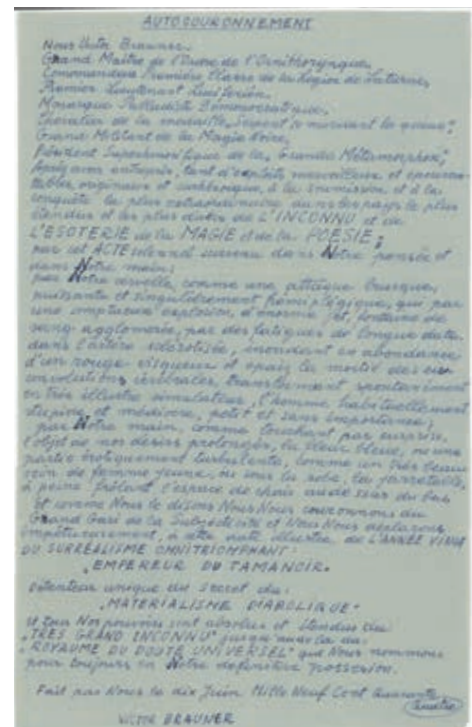 AUTOCOURONNEMENT
Nous Victor Brauner.
Grand Maître de l'Ordre de l'Ornithorynque,
Commandeur Première Classe de la Légion de Satierne,
Premier Lieutenant Luciférien,
Monarque Palladiste
Chevalier de la médaille Serpent se mordant la queue",
Grand Militant de la Magie Noire,
Président de la Grande Métamorphose,
Après avoir entrepris, tant d'exploits merveilleux et épouvan-
tables, originaux et à la soumission et à la
conquête la plus extraordinaire dans les pays le plus
étendus et les plus de L'INCONNU et de
L'ESOTERIE de la MAGIE et de la POESIE;
par cet ACTE solennel survenu dans Notre pensée et
dans Notre main;
par Notre cervelle, comme une attaque brusque,
puissante et singulièrement hémiplégique, qui par
une explosion d'énorme jet, fontaine de
sang aggloméré, par des fatigues de longue date
dans l'artère sclérotisée, inondant en abondance
d'un rouge visqueux et épais la moitié des cir-
convolutions cérébrales transformant spontanément
en très illustre simulateur, l'homme habituellement
stupide et médiocre, petit et sans importance,
par Notre main, comme touchant par surprise,
l'objet de nos désirs prolongés, la fleur bleue, ou une
partie érotiquement turbulente, comme un très beau
sein de femme jeune, ou sous la robe, la jarretelle,
à peine frôlant l'espace de chair au dessus du bas
et comme Nous le disons Nous Nous couronnons du
Grand de la Subjectivité et Nous Nous déplaçons
impétueusement, à cette date illustre de L'ANNÉE
DU SURRÉALISME OMNITRIOMPHANT:
„EMPEREUR DU TAMANOIR„
Détenteur unique du secret du:
„MATERIALISME DIABOLIQUE"
et tous Nos pouvoirs sont absolus et étendus du
„TRES GRAND INCONNU" jusqu'au delà du
„ROYAUME DU DOUTE UNIVERSEL" que Nous nommons
pour toujours en Notre définitive possession.
Fait par Nous le dix Juin Mille Neuf Cent Quarante
VICTOR BRAUNER